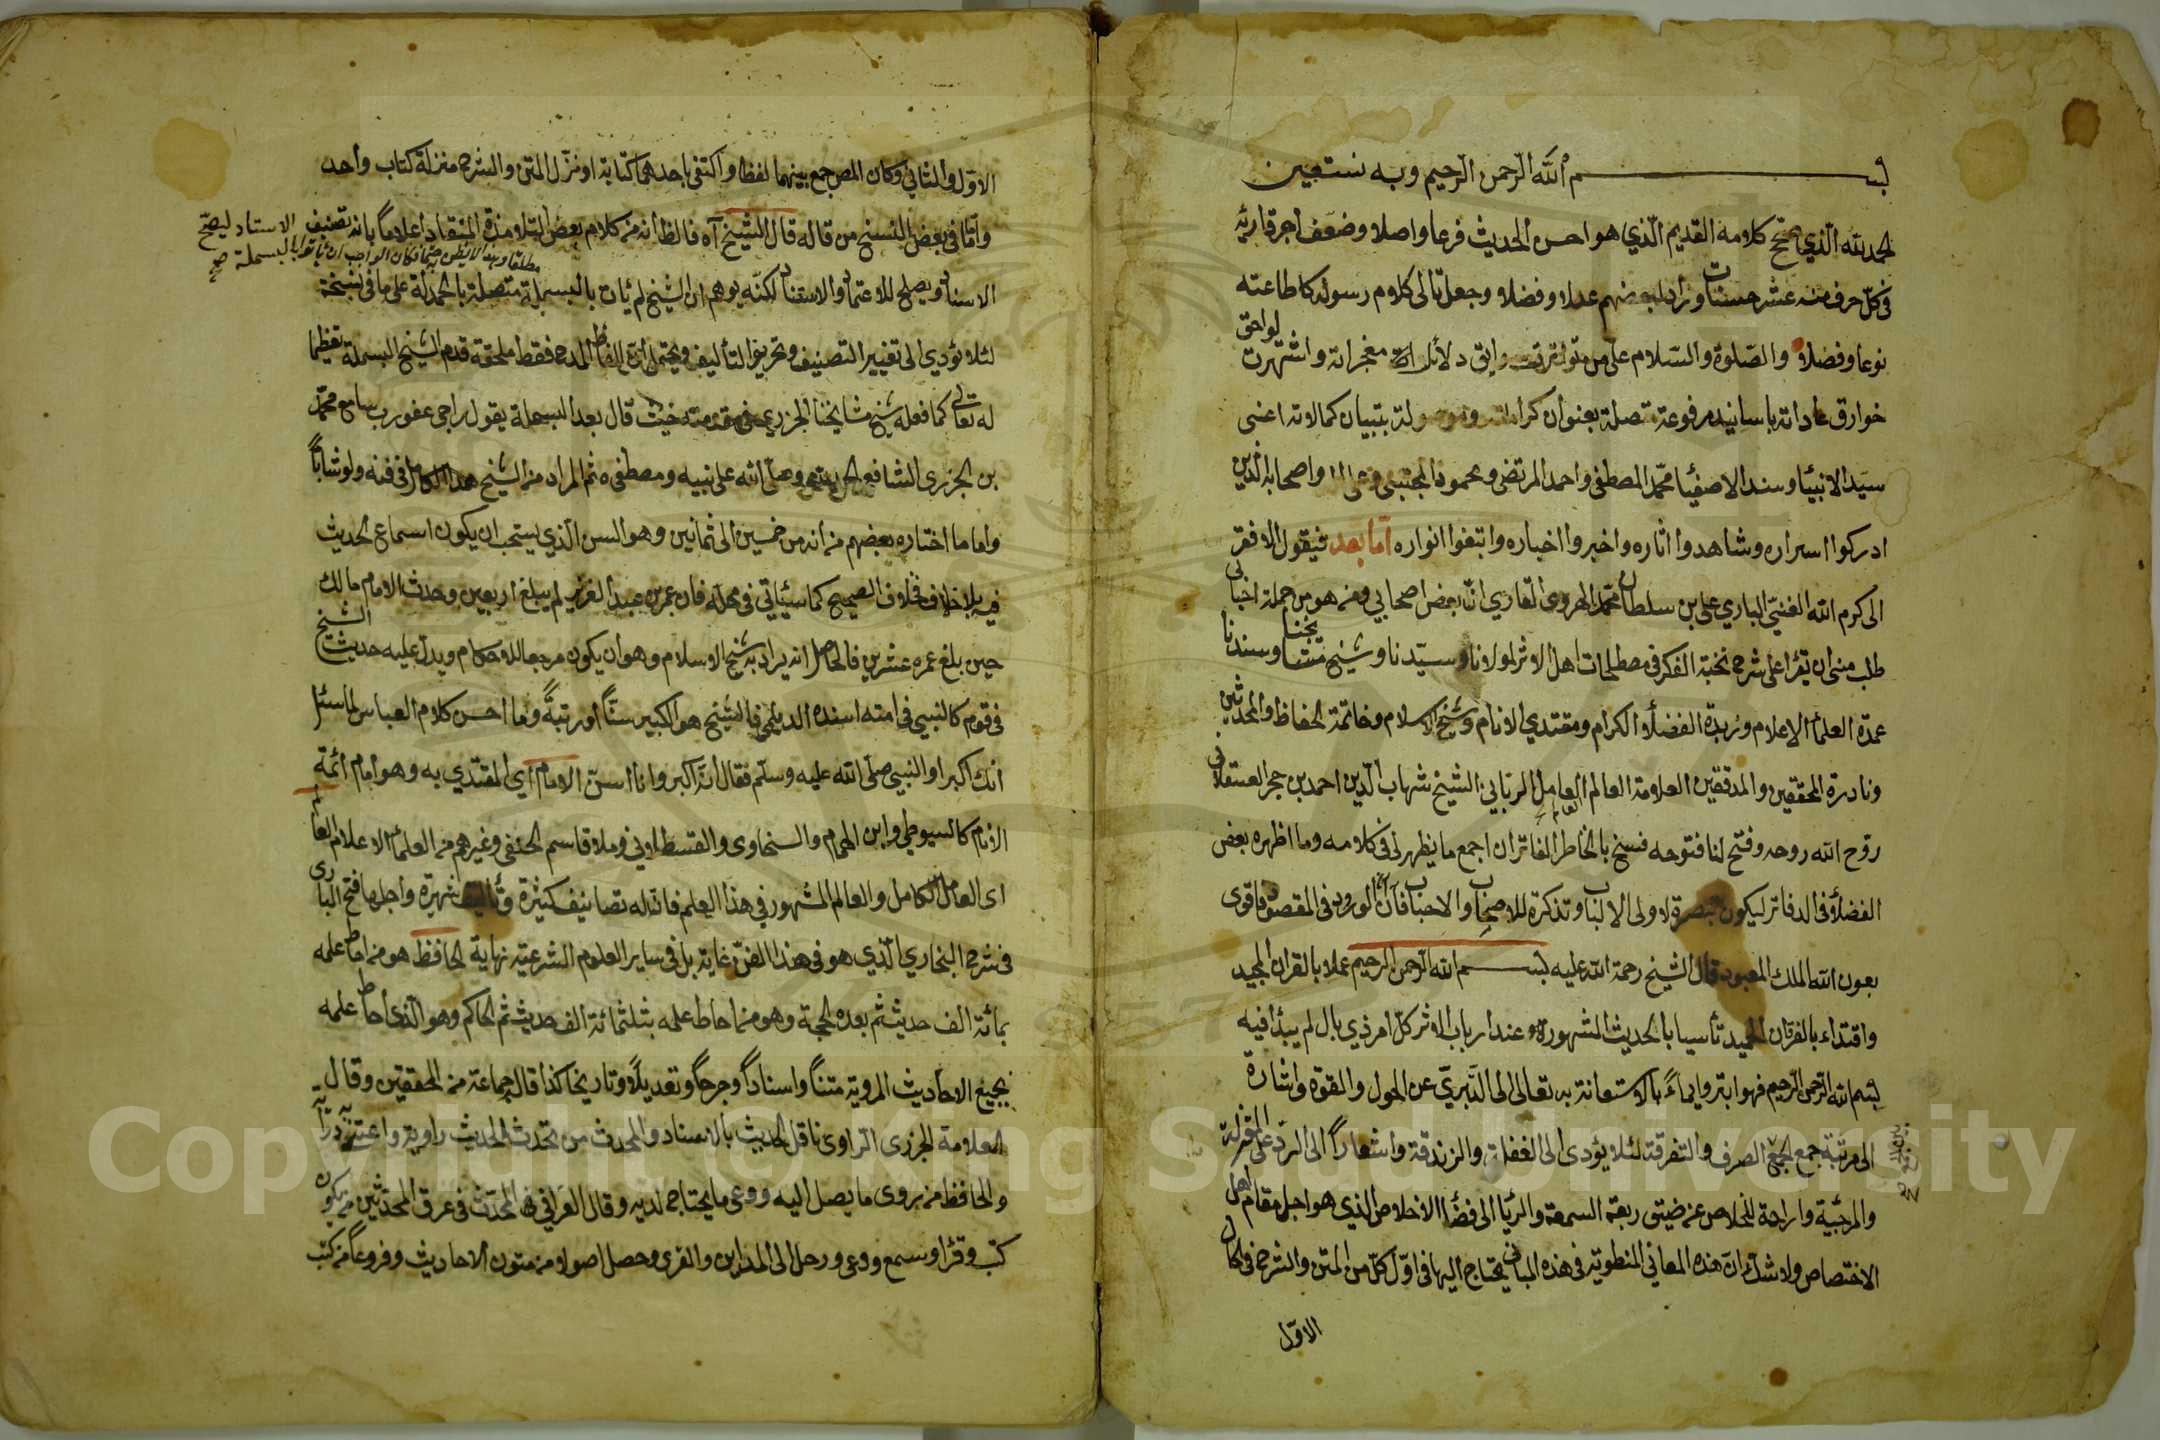 بسم الله الرحمن الرحيم وبه نستعين
الحمد لله الذي صحح كلامه القديم الذي هو احسن الحديث فرعا واصلا وضعف أجر قاريه
في كل حرف منه عشر حسنات وزاد لبعضهم عدلا وفضلا وجعل تالى كلام رسوله كا طاعته
نوعا وفضلا والصلوة والسلام على من تواترت دلائل معجزاته واشتهرت لواحق
خوارق عاداته باسانيد مرفوعة متصلة بعنوان كراماته وموصولة بتبيان كمالاته اعنى
سيد الانبيا وسند الاصفيا محمد المصطفى واحمد المرتضى ومحمود المجتبى وعلى اله واصحابه الذين
ادركوا اسراره وشاهدوا اثاره واخبروا اخباره واتبغوا انواره اما بعد فيقول الافقر
الى كرم الله الغني الباري على بن سلطان محمد الهروى القاري ان بعض اصحابي ومنه هو من جملة احبابى
طلب منى ان يقرا على شرح نخبة الفكر في مصطلحات اهل الاثر لمولانا وسيدنا وشيخ مشايخنا وسندنا
عمدة العلما الاعلام وزبدة الفضلا الكرام ومقتدي الانام وشيخ الاسلام وخاتمة الحفاظ والمحدثين
ونادرة المحققين والمدققين العلامة العالم العامل الرباني الشيخ شهاب الدين احمد بن حجر العسقلاني
روح الله روحه وفتح لنا فتوحه فسنح بالخاطر الفاتر ان اجمع ما يظهر لى في كلامه وما اظهره بعض
الفضلا في الدفاتر ليكون تبصرة لاولى الالباب وتذكرة للاصحاب والاحباب فآن آن الورود في المقصود فاقوى
بعون الله الملك المعبود قال الشيخ رحمة الله عليه بسم الله الرحمن الرحيم عملا بالقران المجيد
واقتداء بالفرقان الحميد تأسيا بالحديث المشهور عند ارباب الاثر كل امر ذي بال لم يبدأ فيه
ببسم الله الرحمن الرحيم فهو ابتر وايماءً بالاستعانة به تعالى الى التبري عن الحول والقوة واشارة
الى مرتبة جمع الجمع الصرف والتفرقة لئلا يؤدى الى الغفلة والزندقة واشعاراً الى الرد على المعتزلة
والمرجئية واراحة للخلاص عن ضيق ربقة السمعة والريا الى فضأ الاخلاص الذي هو اجل مقام اهل
الاختصاص ولا شك ان هذه المعاني المنطوية في هذه المبانى يحتاج اليها في اول كل من المتن والشرح فلكان
الاول
الاول والثاني وكان المص جمع بينهما لفظا واكتفى باحدهما كتابة او نزل المتن والشرح منزلة كتاب واحد
واما في بعض النسخ من قاله قال الشيخ آه فالظ أنه من كلام بعض التلامذة المنقاد أعلاماً بانه تصنيف الاستاد ليصح
الاسناد ويصلح للاعتماد والاستناد لكنه يوهم ان الشيخ لم يأت بالبسملة متصلة بالحمدلة على ما في نسخة
لئلا يؤدي الى تغيير التصنيف وتحريف التأليف ويحتمل أن الفاظ المدح فقط ملحقة قدم الشيخ البسملة تعظيما
له تعالى كما فعله شيخ مشايخنا الجزري في مقدمته حيث قال بعد البسملة يقول راجى عفو رب سامع محمد
بن الجزرى الشافعي الحمد لله وصلى الله على نبيه ومصطفى ه ثم المراد من الشيخ هذا الكامل في فنه ولو شاباً
واما ما اختاره بعضهم من أنه من خمسين الى ثمانين وهو السن الذي يستحب ان يكون اسماع الحديث
فيه بلا خلاف فخلاف الصحيح كما سيأتي في محله فان عمر بن عبد العزيز لم يبلغ اربعين وحدث الامام مالك
حين بلغ عمره عشرين فالحاصل انه يراد به شيخ الاسلام وهو ان يكون مرجعا للاحكام ويدل عليه حديث الشيخ
في قوم كالنبي في امته اسنده الديلمي فالشيخ هو الكبير سنًّا أو رتبةً وما احسن كلام العباس لما سئل
انك اكبر او النبي صلى الله عليه وسلم فقال انه اكبر وانا اسن الامام اي المقتدي به وهو امام أئمة
الانام كالسيوطي وابن الهمام والسخاوى والقسطلانى وملا قاسم الحنفى وغيرهم من العلما الاعلام العالم
اى العامل الكامل والعالم المشهور في هذا العلم فانه له تصانيف كثيرة وتأليف شهيرة واجلها فتح البارى
في شرح البخاري الذي هو في هذا الفن غاية بل في ساير العلوم الشرعية نهاية الحافظ هو من احاط علمه
بمائة الف حديث ثم بعده الحجة وهو من احاط علمه بثلثمائة الف حديث ثم الحاكم وهو الذي أحاط علمه
بجميع الاحاديث المروية متناً واسناداً وجرحاً وتعديلاً وتاريخا كذا قال جماعة من المحققين وقال
العلامة الجزرى الراوى ناقل الحديث بالاسناد والمحدث من تحدث الحديث راوية واعتنى دراية
والحافظ من روى ما يصل اليه ووعى ما يحتاج لديه وقال العراقي المحدث في عرف المحدثين من يكون
كتب وقرا وسمع ووعى ورحل الى المداين والقرى وحصل اصولا من متون الاحاديث وفروعاً من كتب
Copyright © King Saud University
1957